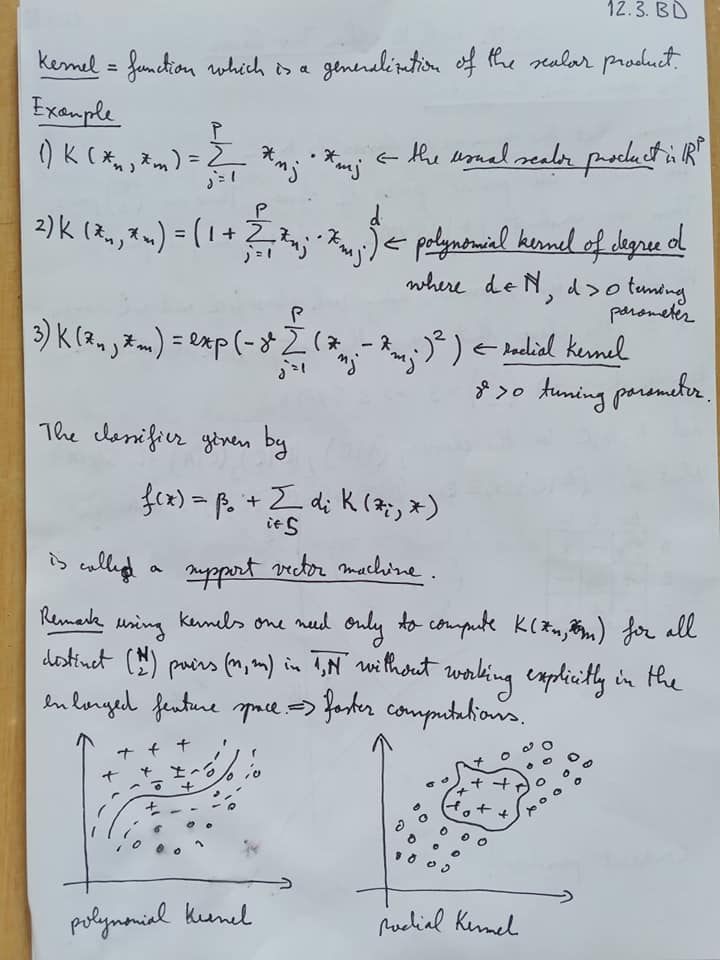 12.3. BD
Kernel = function which is a generalization of the scalar product.
Example
1) K(x_n, x_m) = ∑_{j=1}^{p} x_{nj} · x_{mj} ← the usual scalar product in ℝ^p
2) K(x_n, x_m) = (1 + ∑_{j=1}^{p} x_{nj} · x_{mj})^d ← polynomial kernel of degree d
where d ∈ ℕ, d > 0 tuning
parameter
3) K(x_n, x_m) = exp(-γ ∑_{j=1}^{p} (x_{nj} - x_{mj})^2) ← radial kernel
γ > 0 tuning parameter.
The classifier given by
f(x) = β_0 + ∑_{i∈S} α_i K(x_i, x)
is called a support vector machine.
Remark using kernels one need only to compute K(x_n, x_m) for all
distinct (N 2) pairs (n, m) in \overline{1,N} without working explicitly in the
enlarged feature space. ⇒ faster computations.
polynomial kernel
radial kernel